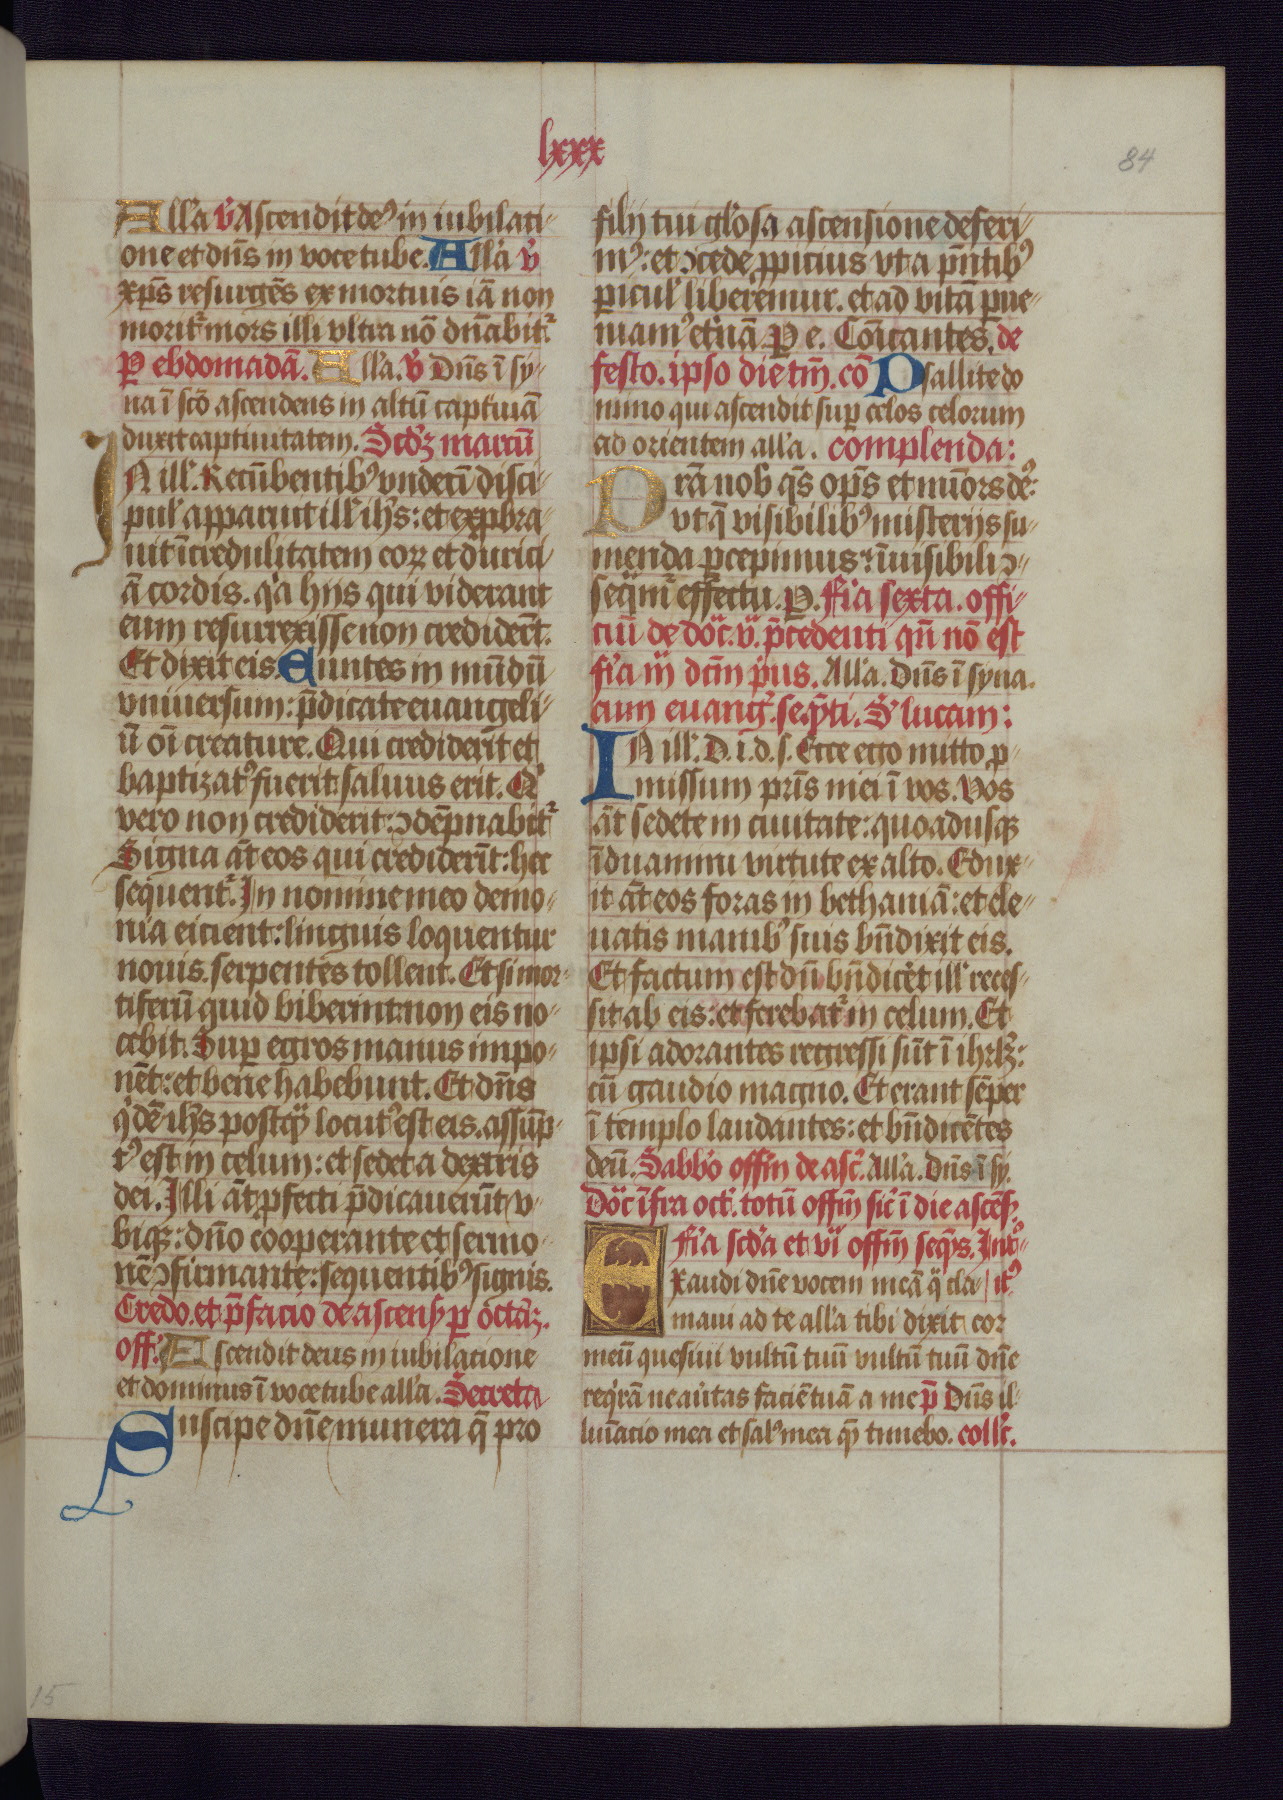 lxxx
84
Alla v̄ Ascendit deꝰ in iubilati⸗
one et dn̄s in voce tube. Alla v̄
xp̄s resurgēs ex mortuis iā non
morit᷑ mors illi vltra nō dn̄abit᷑
P ebdomadā. Alla. v̄ Dn̄s ī sy⸗
na ī scō ascendens in altū captiuā
duxit captiuitatem. Scd'ꝫ marcū
IN ill'. Recūbentibꝰ vndecī disci⸗
pul' apparuit ill' ihs: et exprobra⸗
uit īcredulitatem coꝝ et durici⸗
ā cordis. q'a hijs qui viderant
eum resurrexisse non crediderūt.
Et dixit eis. Euntes in mūdū
vniuersum: p̄dicate euangeli⸗
ū oī creature. Qui crediderit et
baptizatꝰ fuerit: saluus erit. Q'
vero non crediderit: ɔdēpnabit᷑
Signa āt eos qui crediderīt: hec
sequent᷑. In nomine meo demo⸗
nia eicient: linguis loquentur
nouis. serpentes tollent. Et si mor⸗
tiferū quid biberint: non eis no⸗
cebit. Sup egros manus impo⸗
nēt: et bene habebunt. Et dn̄s
q'dē ihs postq̄ȝ locutꝰ est eis. assūp⸗
tꝰ est in celum: et sedet a dextris
dei. Illi āt ꝓfecti p̄dicauerūt v⸗
biqꝫ: dn̄o cooperante et sermo⸗
nē ɔfirmante: sequentibꝰ signis.
Credo. et p̄facio de ascens' p octāꝫ.
Off'. Ascendit deus in iubilacione
et dominus ī voce tube alla. Secreta
Suscipe dn̄e munera q̄ pro
filij tui gl'osa ascensione deferi⸗
mꝰ: et ɔcede ꝓpicius vt a pn̄tibꝰ
picul' liberemur. et ad vitā pue⸗
niamꝰ et'nā. P e. Cōicantes. de
festo. ipso die tm̄. cō Psallite do
mino qui ascendit sup celos celorum
ad orientem alla. complenda:
Prā nob' q̄s op̄s et mīors dꝰ:
vt q̄ visibilibꝰ misterijs su⸗
menda pcepimus: īuisibili ɔ⸗
seq̄m᷑ effectu. P. Fi'a sexta. offi⸗
ciū de doc̄. v̄. p̄cedenti qn̄ nō est
fi'a iij dcm̄ p'us. Alla. Dn̄s ī syna.
cum euang'. se. p̄ti. S' lucam:
IN ill'. D. i. d. s. Ecce ego mitto p⸗
missum pr̄is mei ī vos. Vos
āt sedete in ciuitate: quoadusqꝫ
īduamini virtute ex alto. Edux⸗
it āt eos foras in bethaniā: et ele⸗
uatis manibꝰ suis bn̄dixit eis.
Et factum est dū bn̄dic'et ill' reces⸗
sit ab eis: et ferebat᷑ in celum. Et
ipsi adorantes regressi sūt ī ihrlꝫ:
cū gaudio magno. Et erant sēper
ī templo laudantes: et bn̄dicētes
deū. Sabb'o offm̄ de asc'. Alla. Dn̄s ī sy.
Doc̄ īfra oct'. totū offm̄ sic' ī die ascēs'.
Fi'a scd'a et vi offm̄ seq̄s. Int'⸗
Exaudi dn̄e vocem meā q̄ cla⸗ it'
maui ad te alla tibi dixit cor
meū quesiui vultū tuū vultū tuū dn̄e
req'rā ne au'tas faciē tuā a me p̄ Dn̄s il⸗
luīacio mea et salꝰ mea q̄ȝ timebo. coll'c.
15